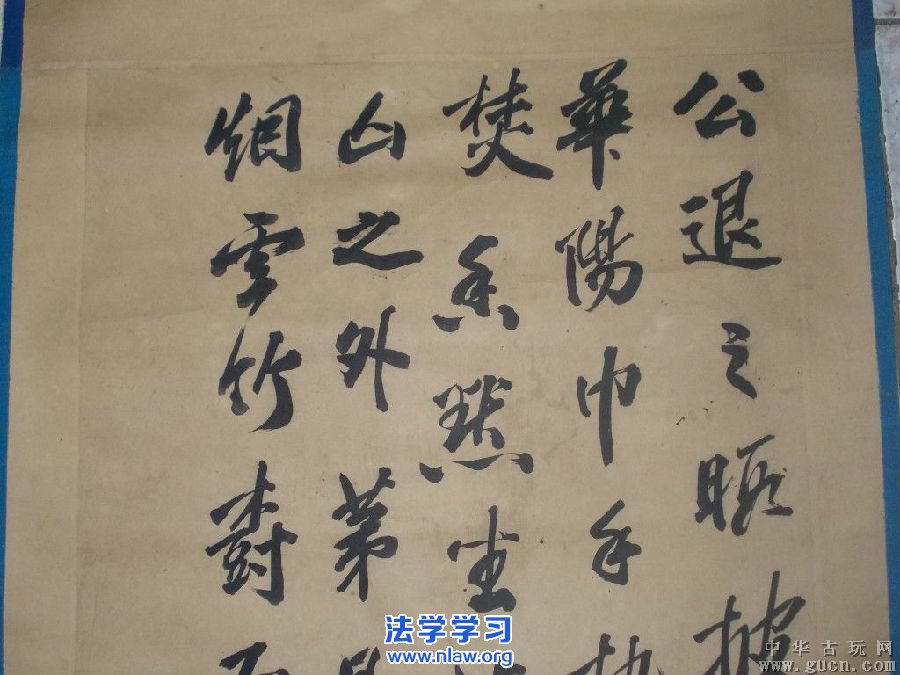 公退之暇披
華陽巾手執
焚香默坐
山之外第見
烟雲竹樹而
法学学习
www.nlaw.org
中华古玩网
www.gucn.com